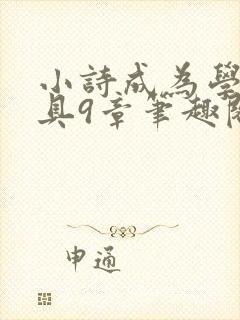 小詩成為學
具9章筆趣閣
申通